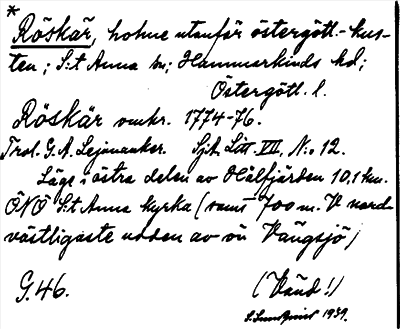 *
Röskär, holme utanför östergött.-kus-
ten; S:t Anna sn; Hammarkinds hd;
Östergötl. l.
Röskär omkr. 1774-76.
Trol. G. A. Lejonanker. Sjk. Litt VII, N:o 12.
Läge i östra delen av Hålfjärden 10,1 km.
ÖNÖ S:t Anna kyrka (samt 700 m. V nord-
västligaste udden av ön Vängsjö)
G. 46. (Vänd!)
1939.